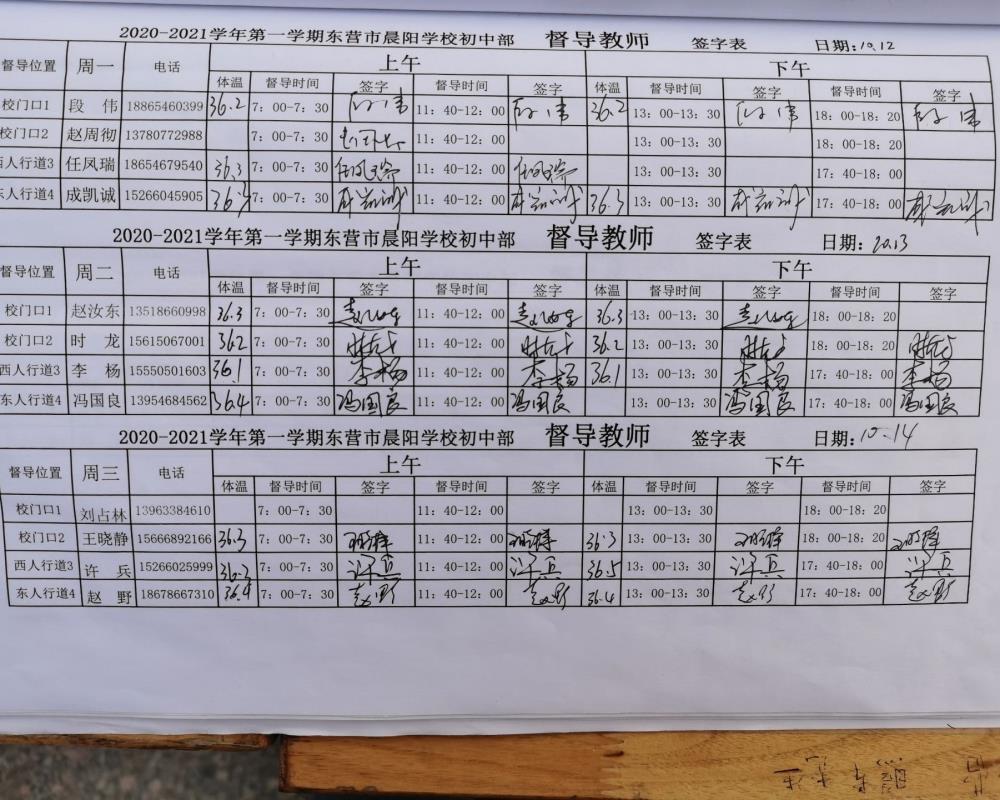 2020-2021学年第一学期东营市晨阳学校初中部 督导教师 签字表 日期:10.12
督导位置 周一 电话 上午 下午
体温 督导时间 签字 督导时间 签字 体温 督导时间 签字 督导时间 签字
校门口1 段 伟 18865460399 36.2 7:00-7:30 段伟 11:40-12:00 段伟 36.2 13:00-13:30 段伟 18:00-18:20 段伟
校门口2 赵周彻 13780772988 7:00-7:30 11:40-12:00 13:00-13:30 18:00-18:20
西人行道3 任凤瑞 18654679540 36.3 7:00-7:30 任凤瑞 11:40-12:00 任凤瑞 13:00-13:30 17:40-18:00
东人行道4 成凯诚 15266045905 7:00-7:30 成凯诚 11:40-12:00 成凯诚 36.3 13:00-13:30 成凯诚 17:40-18:00 成凯诚
2020-2021学年第一学期东营市晨阳学校初中部 督导教师 签字表 日期:10.13
督导位置 周二 电话 上午 下午
体温 督导时间 签字 督导时间 签字 体温 督导时间 签字 督导时间 签字
校门口1 赵汝东 13518660998 36.3 7:00-7:30 赵汝东 11:40-12:00 赵汝东 36.3 13:00-13:30 赵汝东 18:00-18:20
校门口2 时 龙 15615067001 36.2 7:00-7:30 时龙 11:40-12:00 时龙 36.2 13:00-13:30 时龙 18:00-18:20 时龙
西人行道3 李 杨 15550501603 36.1 7:00-7:30 李杨 11:40-12:00 李杨 36.1 13:00-13:30 李杨 17:40-18:00 李杨
东人行道4 冯国良 13954684562 36.4 7:00-7:30 冯国良 11:40-12:00 冯国良 13:00-13:30 冯国良 17:40-18:00 冯国良
2020-2021学年第一学期东营市晨阳学校初中部 督导教师 签字表 日期:10.14
督导位置 周三 电话 上午 下午
体温 督导时间 签字 督导时间 签字 体温 督导时间 签字 督导时间 签字
校门口1 刘占林 13963384610 7:00-7:30 11:40-12:00 13:00-13:30 18:00-18:20
校门口2 王晓静 15666892166 36.3 7:00-7:30 王晓静 11:40-12:00 王晓静 36.3 13:00-13:30 王晓静 18:00-18:20 王晓静
西人行道3 许 兵 15266025999 36.3 7:00-7:30 许兵 11:40-12:00 许兵 36.5 13:00-13:30 许兵 17:40-18:00 许兵
东人行道4 赵 野 18678667310 36.4 7:00-7:30 赵野 11:40-12:00 赵野 36.4 13:00-13:30 赵野 17:40-18:00 赵野